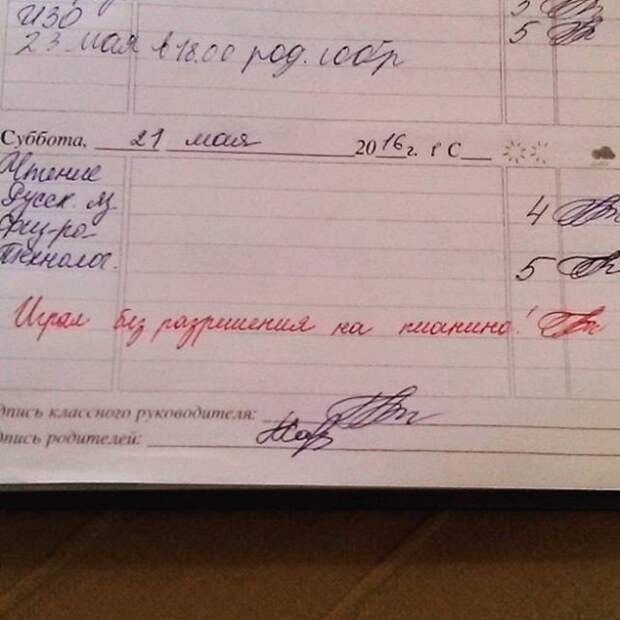 ИЗО 5
23 мая в 18.00 род. собр 5
Суббота, 21 мая 2016 г. t° C
Чтение
Русск. яз. 4
Физ-ра
Технолог. 5
Играл без разрешения на пианино!
дпись классного руководителя:
дпись родителей: